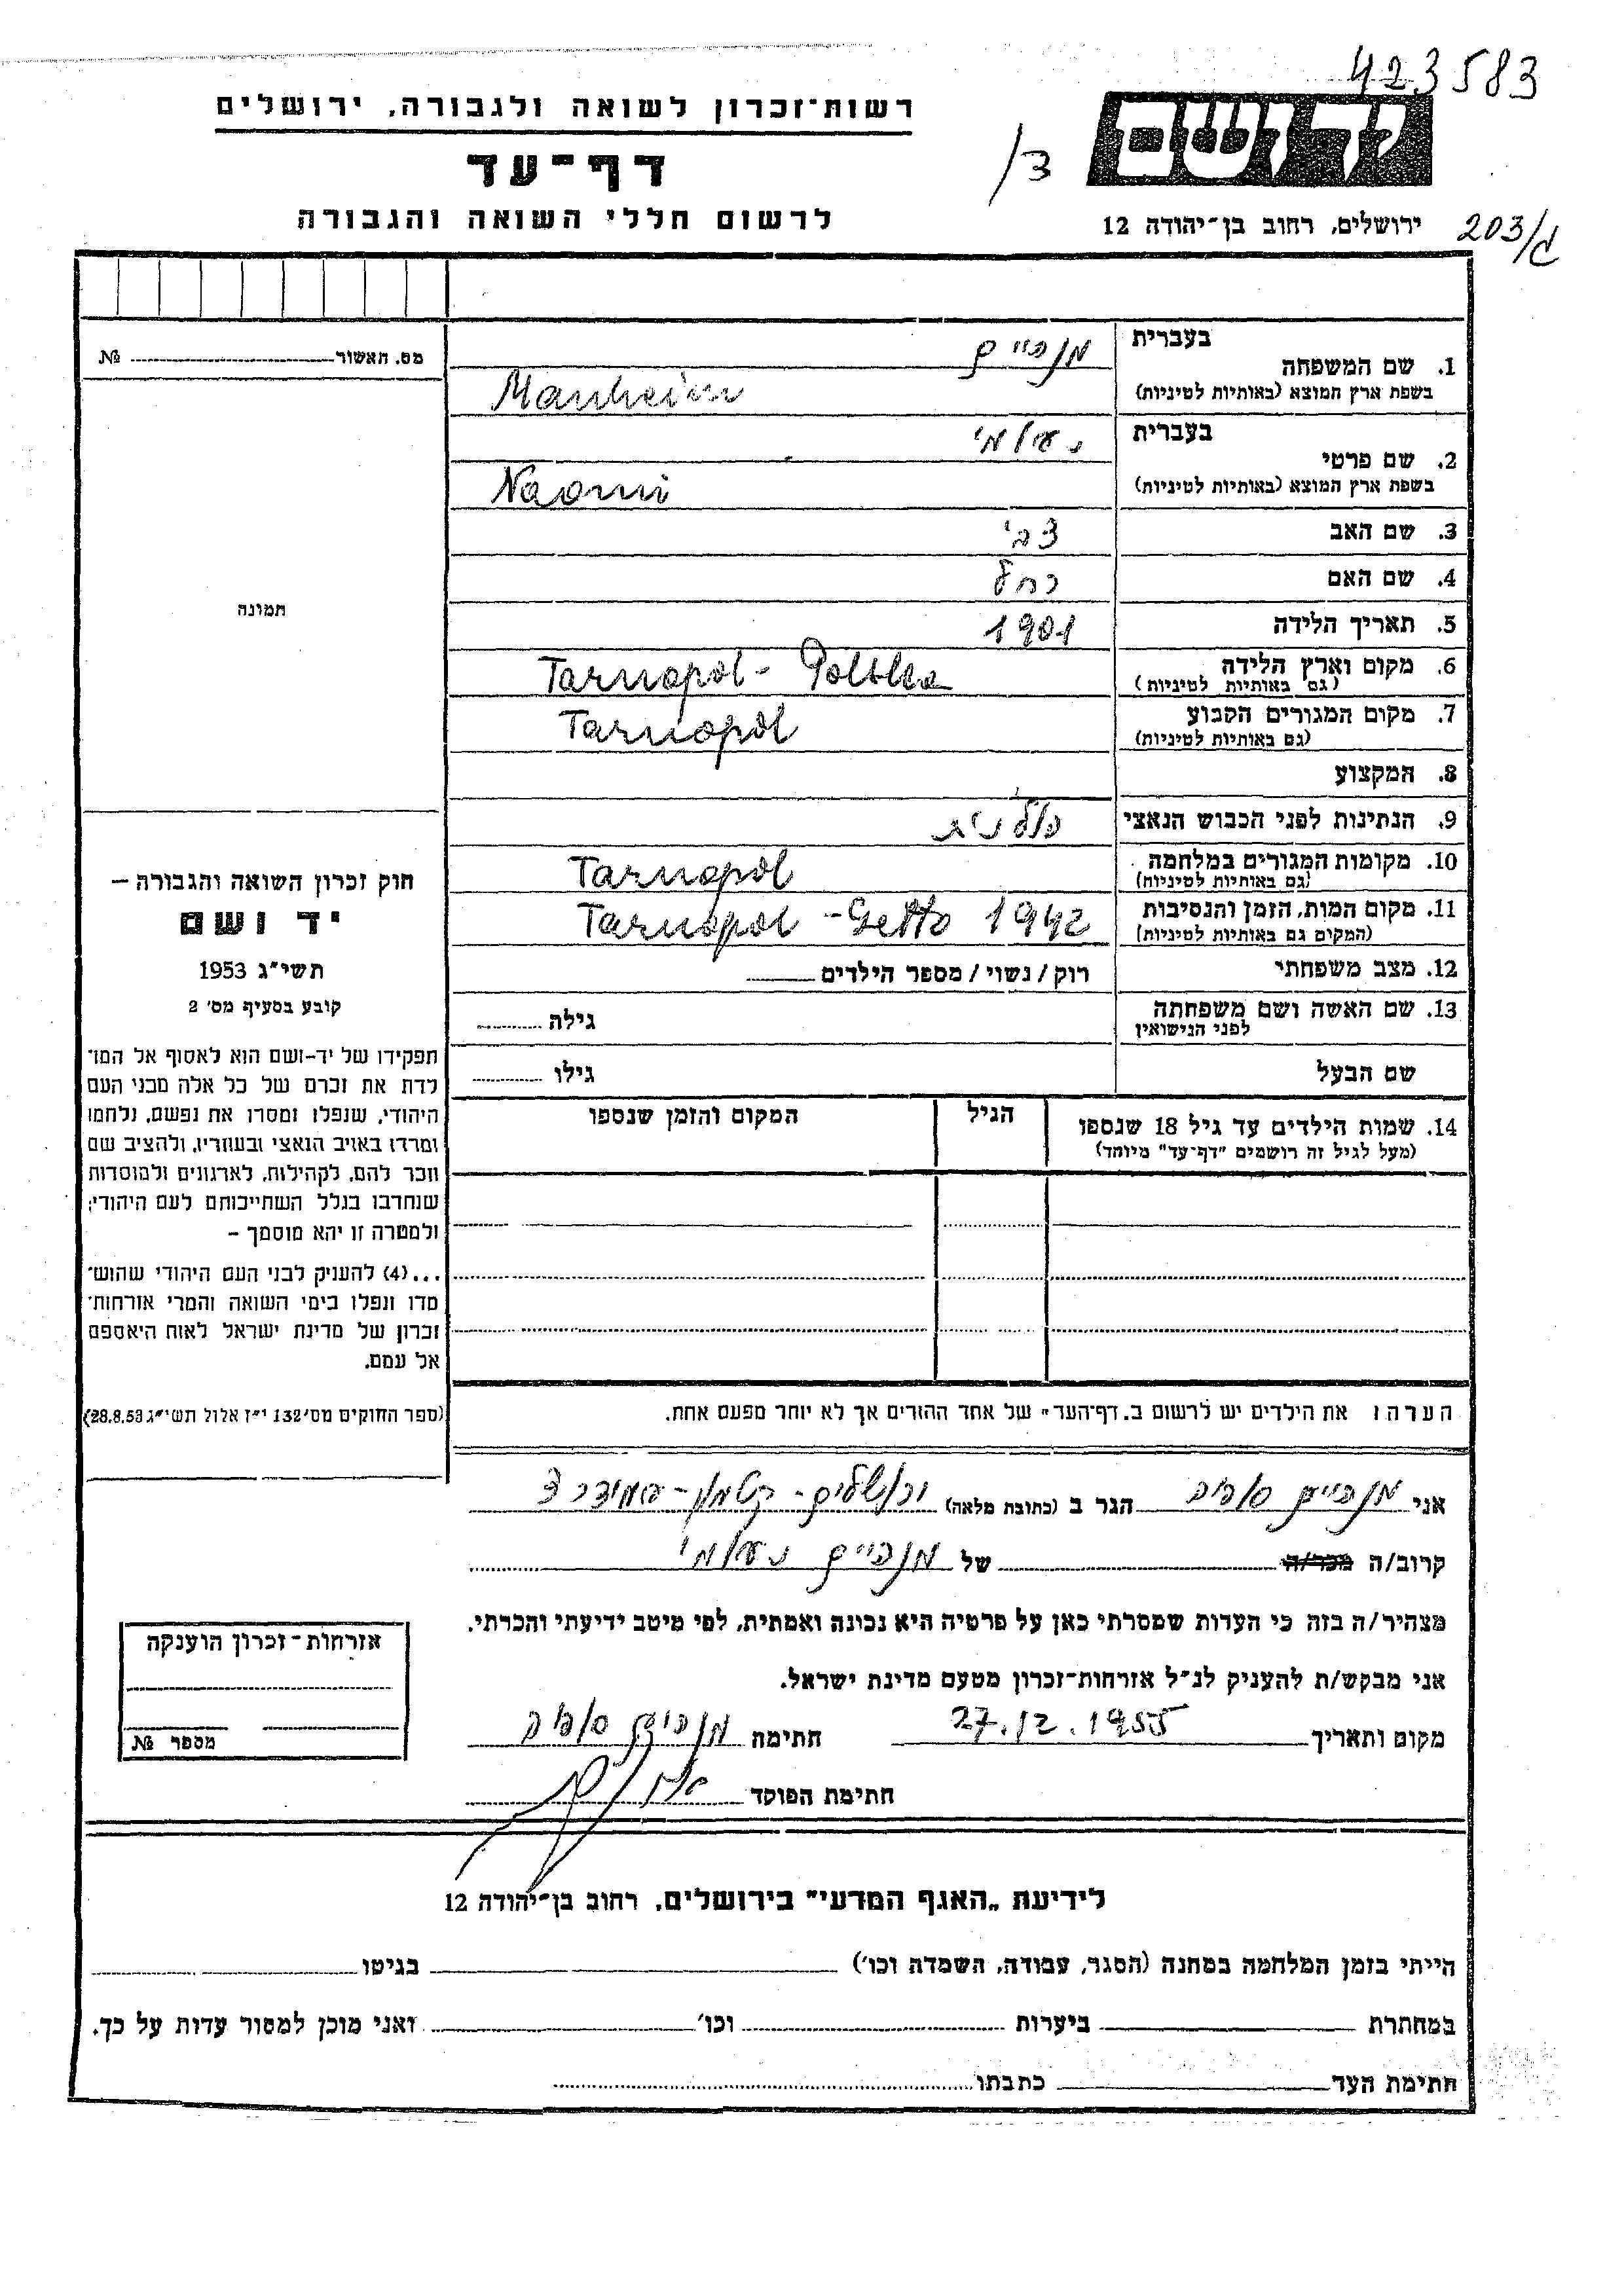 423583
רשות־זכרון לשואה ולגבורה, ירושלים
דף־עד
לרשום חללי השואה והגבורה
ידושם
ירושלים, רחוב בן־יהודה 12
203/ג
מס. האשור № 
1. שם המשפחה
בעברית מנהיים
בשפת ארץ המוצא (באותיות לטיניות) Manheim
2. שם פרטי
בעברית נעומי
בשפת ארץ המוצא (באותיות לטיניות) Naomi
3. שם האב צבי
4. שם האם רחל
5. תאריך הלידה 1901
6. מקום וארץ הלידה Tarnopol - Polska
(גם באותיות לטיניות)
7. מקום המגורים הקבוע Tarnopol
(גם באותיות לטיניות)
8. המקצוע
9. הנתינות לפני הכבוש הנאצי פולנית
10. מקומות המגורים במלחמה Tarnopol
(גם באותיות לטיניות)
11. מקום המות, הזמן והנסיבות Tarnopol - Getto 1942
(המקום גם באותיות לטיניות)
12. מצב משפחתי רוק / נשוי / מספר הילדים
13. שם האשה ושם משפחתה גילה
לפני הנישואין
שם הבעל גילו
14. שמות הילדים עד גיל 18 שנספו הגיל המקום והזמן שנספו
(מעל לגיל זה רושמים "דף־עד" מיוחד)
תמונה
חוק זכרון השואה והגבורה —
יד ושם
תשי"ג 1953
קובע בסעיף מס' 2
תפקידו של יד־ושם הוא לאסוף אל המו־
לדת את זכרם של כל אלה מבני העם
היהודי, שנפלו ומסרו את נפשם, נלחמו
ומרדו באויב הנאצי ובעוזריו, ולהציב שם
וזכר להם, לקהילות, לארגונים ולמוסדות
שנחרבו בגלל השתייכותם לעם היהודי;
ולמטרה זו יהא מוסמך –
...(4) להעניק לבני העם היהודי שהוש־
מדו ונפלו בימי השואה והמרי אזרחות־
זכרון של מדינת ישראל לאות היאספם
אל עמם.
(ספר החוקים מס' 132 י"ז אלול תשי"ג 28.8.53)
הערה: את הילדים יש לרשום ב"דף־העד" של אחד ההורים אך לא יותר מפעם אחת.
אני מנהיים הגר ב (כתובת מלאה) ירושלים - קטמון - עמידר
קרוב/ה מכר/ה של מנהיים נעומי
מצהיר/ה בזה כי העדות שמסרתי כאן על פרטיה היא נכונה ואמתית, לפי מיטב ידיעתי והכרתי.
אני מבקש/ת להעניק לנ"ל אזרחות־זכרון מטעם מדינת ישראל.
מקום ותאריך 27.12.1955 חתימה מנהיים
חתימת הפוקד
אזרחות־זכרון הוענקה
מספר №
לידיעת "האגף המדעי" בירושלים, רחוב בן־יהודה 12
הייתי בזמן המלחמה במחנה (הסגר, עבודה, השמדה וכו') בגיטו
במחתרת ביערות וכו' ואני מוכן למסור עדות על כך.
חתימת העד כתבתו